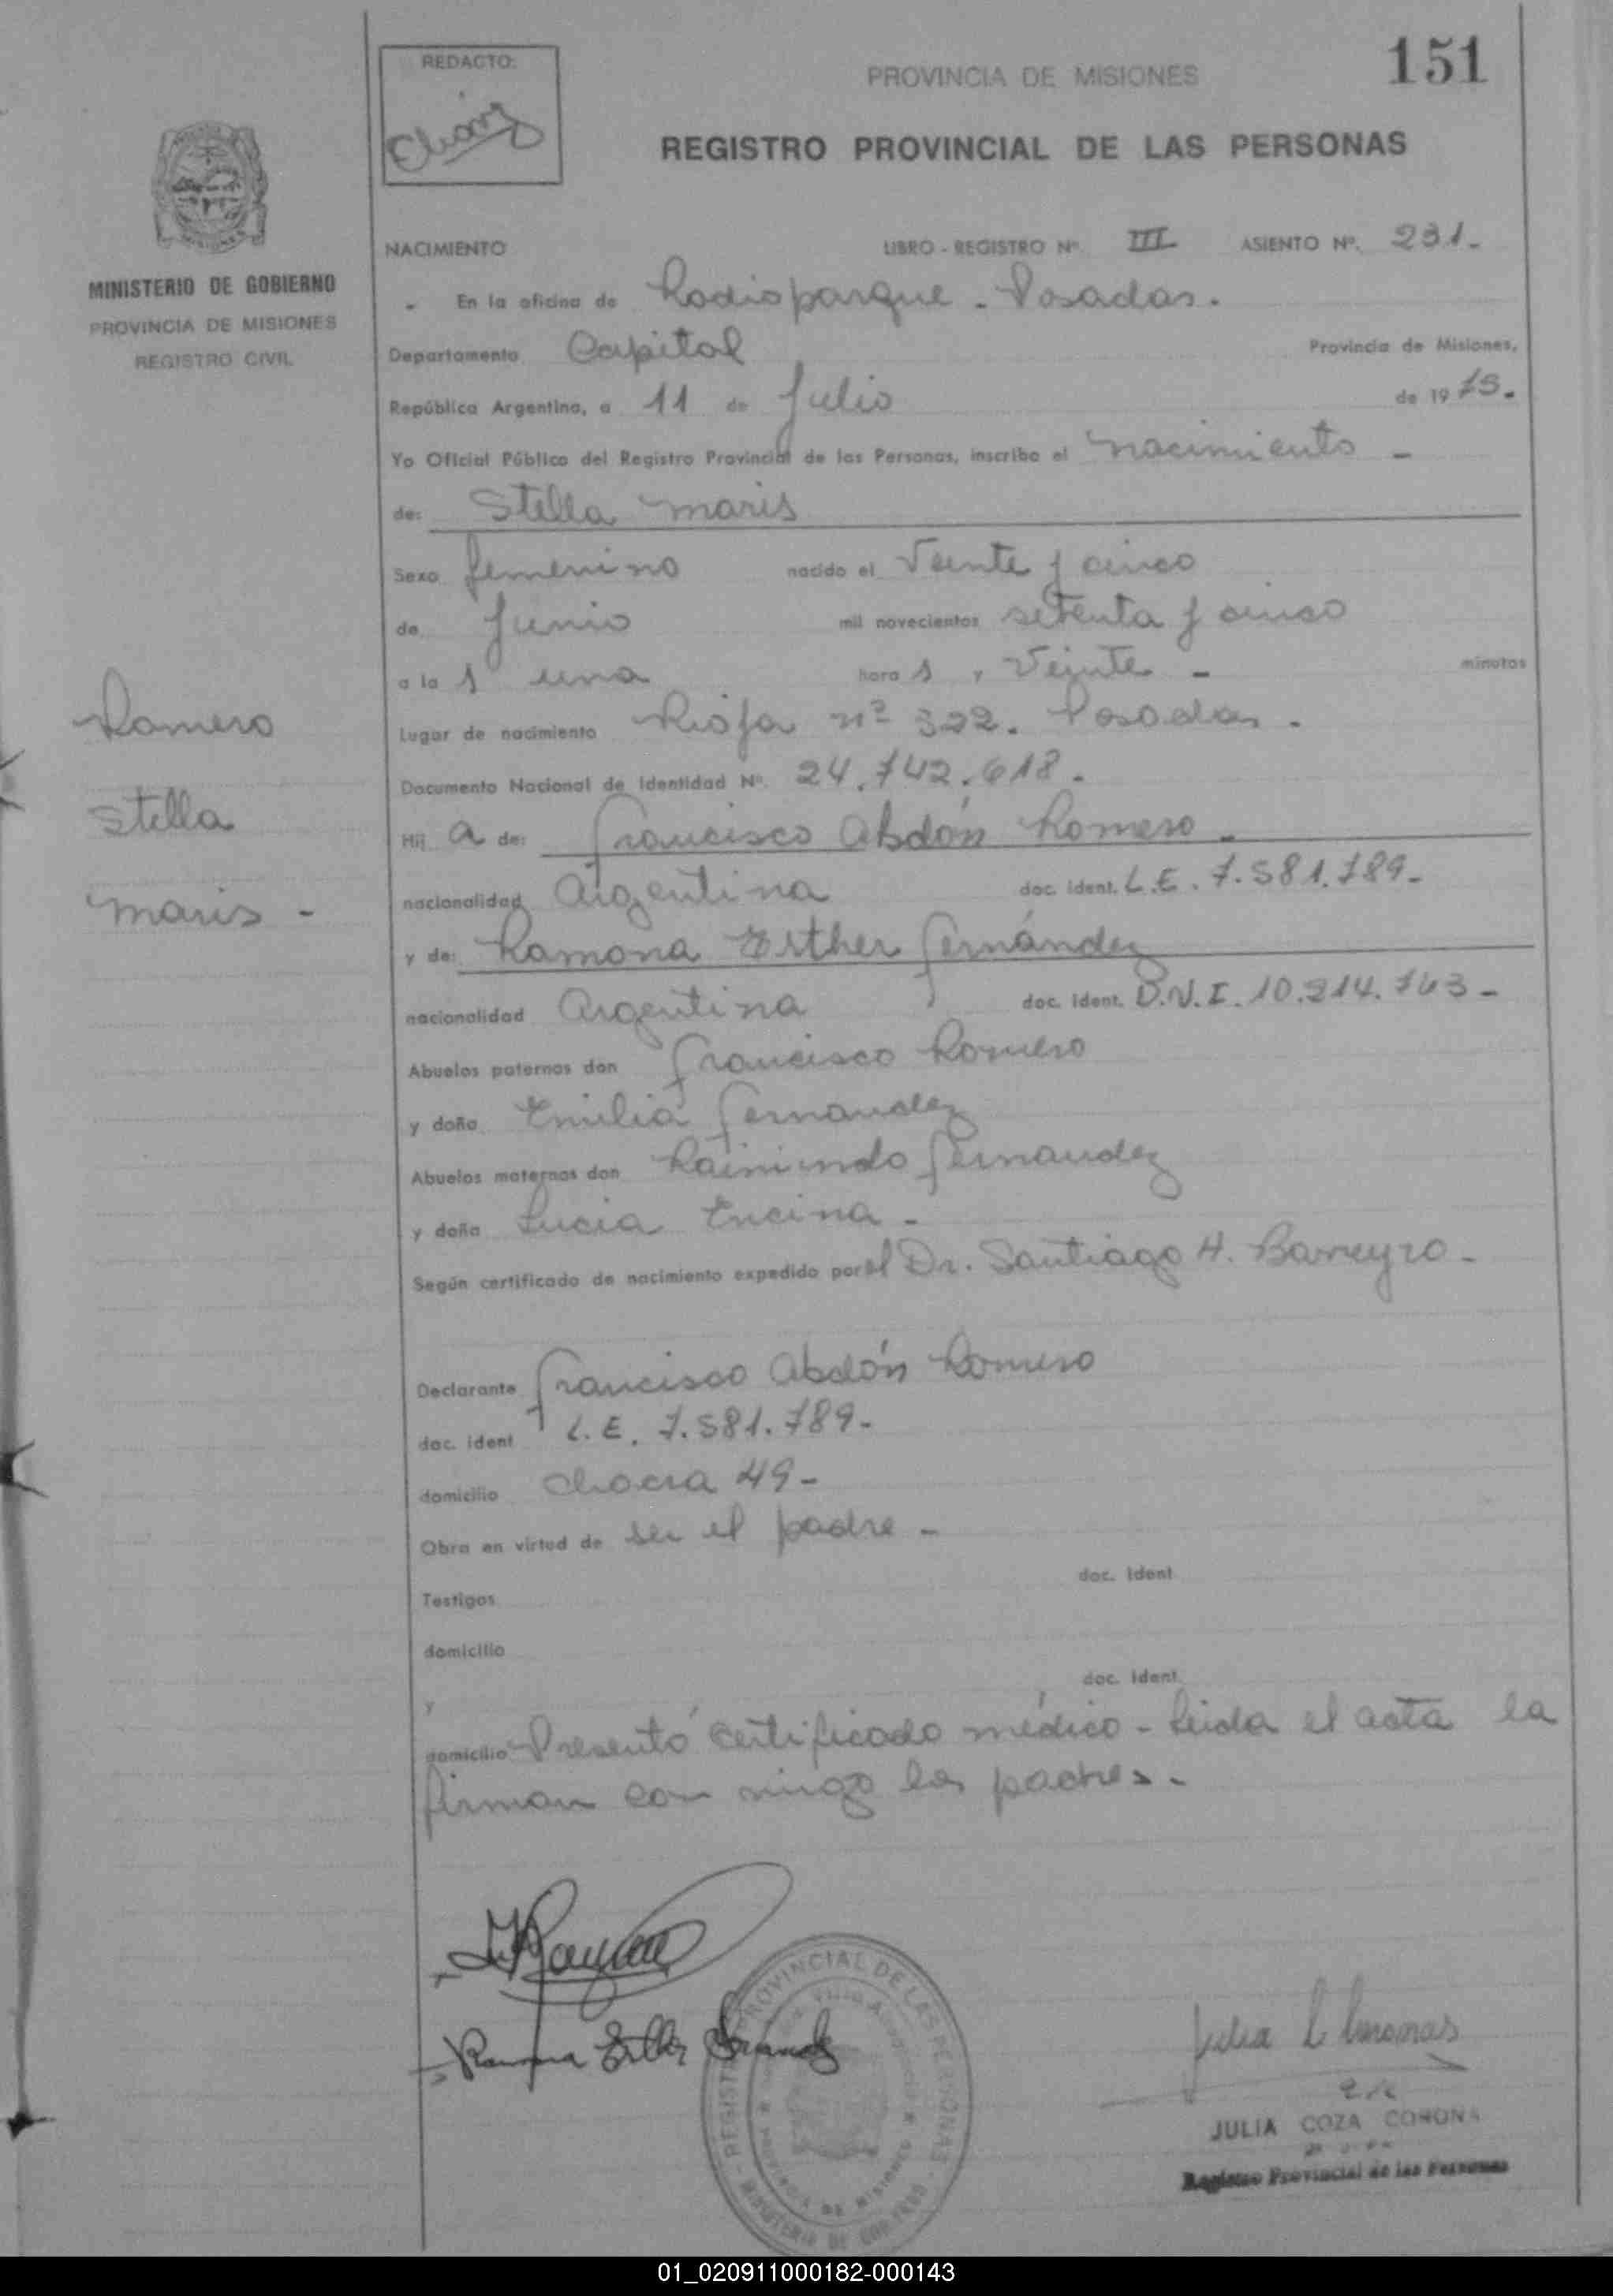 151
REDACTO:
PROVINCIA DE MISIONES
REGISTRO PROVINCIAL DE LAS PERSONAS
MINISTERIO DE GOBIERNO
PROVINCIA DE MISIONES
REGISTRO CIVIL
NACIMIENTO LIBRO - REGISTRO Nº. III ASIENTO Nº. 231.-
- En la oficina de Rodioparque - Posadas.
Departamento Capital Provincia de Misiones,
República Argentina, a 11 de Julio de 1975.-
Yo Oficial Público del Registro Provincial de las Personas, inscribo el nacimiento -
de: Stella Maris
Sexo femenino nacido el Veinte y cinco
de Junio mil novecientos setenta y cinco
a la s una hora s y Veinte - minutos
Lugar de nacimiento Rioja nº 322. Posadas.
Documento Nacional de Identidad Nº. 24.742.618.
Hij a de: Francisco Abdón Romero -
nacionalidad Argentina doc. ident. L.E. 7.581.789-
y de: Ramona Esther Fernández
nacionalidad Argentina doc. ident. D.N.I. 10.214.763-
Abuelos paternos don Francisco Romero
y doña Emilia Fernandez
Abuelos maternos don Raimundo Fernandez
y doña Lucia Encina -
Según certificado de nacimiento expedido por el Dr. Santiago H. Barreyro -
Romero
Stella
Maris -
Declarante Francisco Abdón Romero
doc. ident L.E. 7.581.789-
domicilio Chacra 49-
Obra en virtud de ser el padre -
doc. ident
Testigos
domicilio
doc. ident
y
domicilio Presentó certificado médico - Leida el acta la
firman con migo los padres.-
Ramona Esther Fernandez
REGISTRO PROVINCIAL DE LAS PERSONAS
PROVINCIA DE MISIONES
MINISTERIO DE GOBIERNO
JULIA COZA CORONA
Registro Provincial de las Personas
01_020911000182-000143